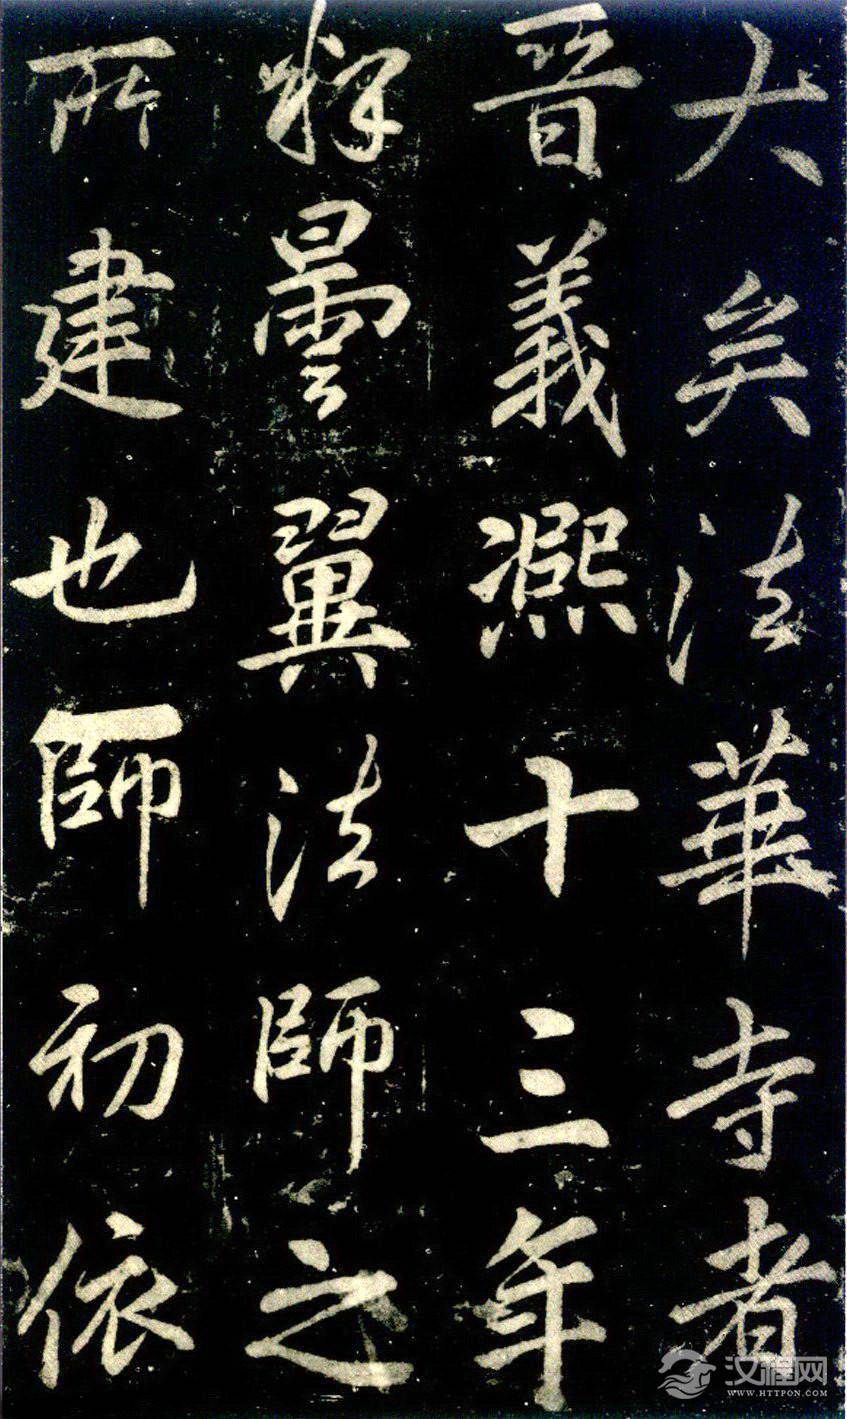 大矣法華寺者
晉義熙十三年
釋曇翼法師之
所建也師初依
汉程网
WWW.HTTPCN.COM